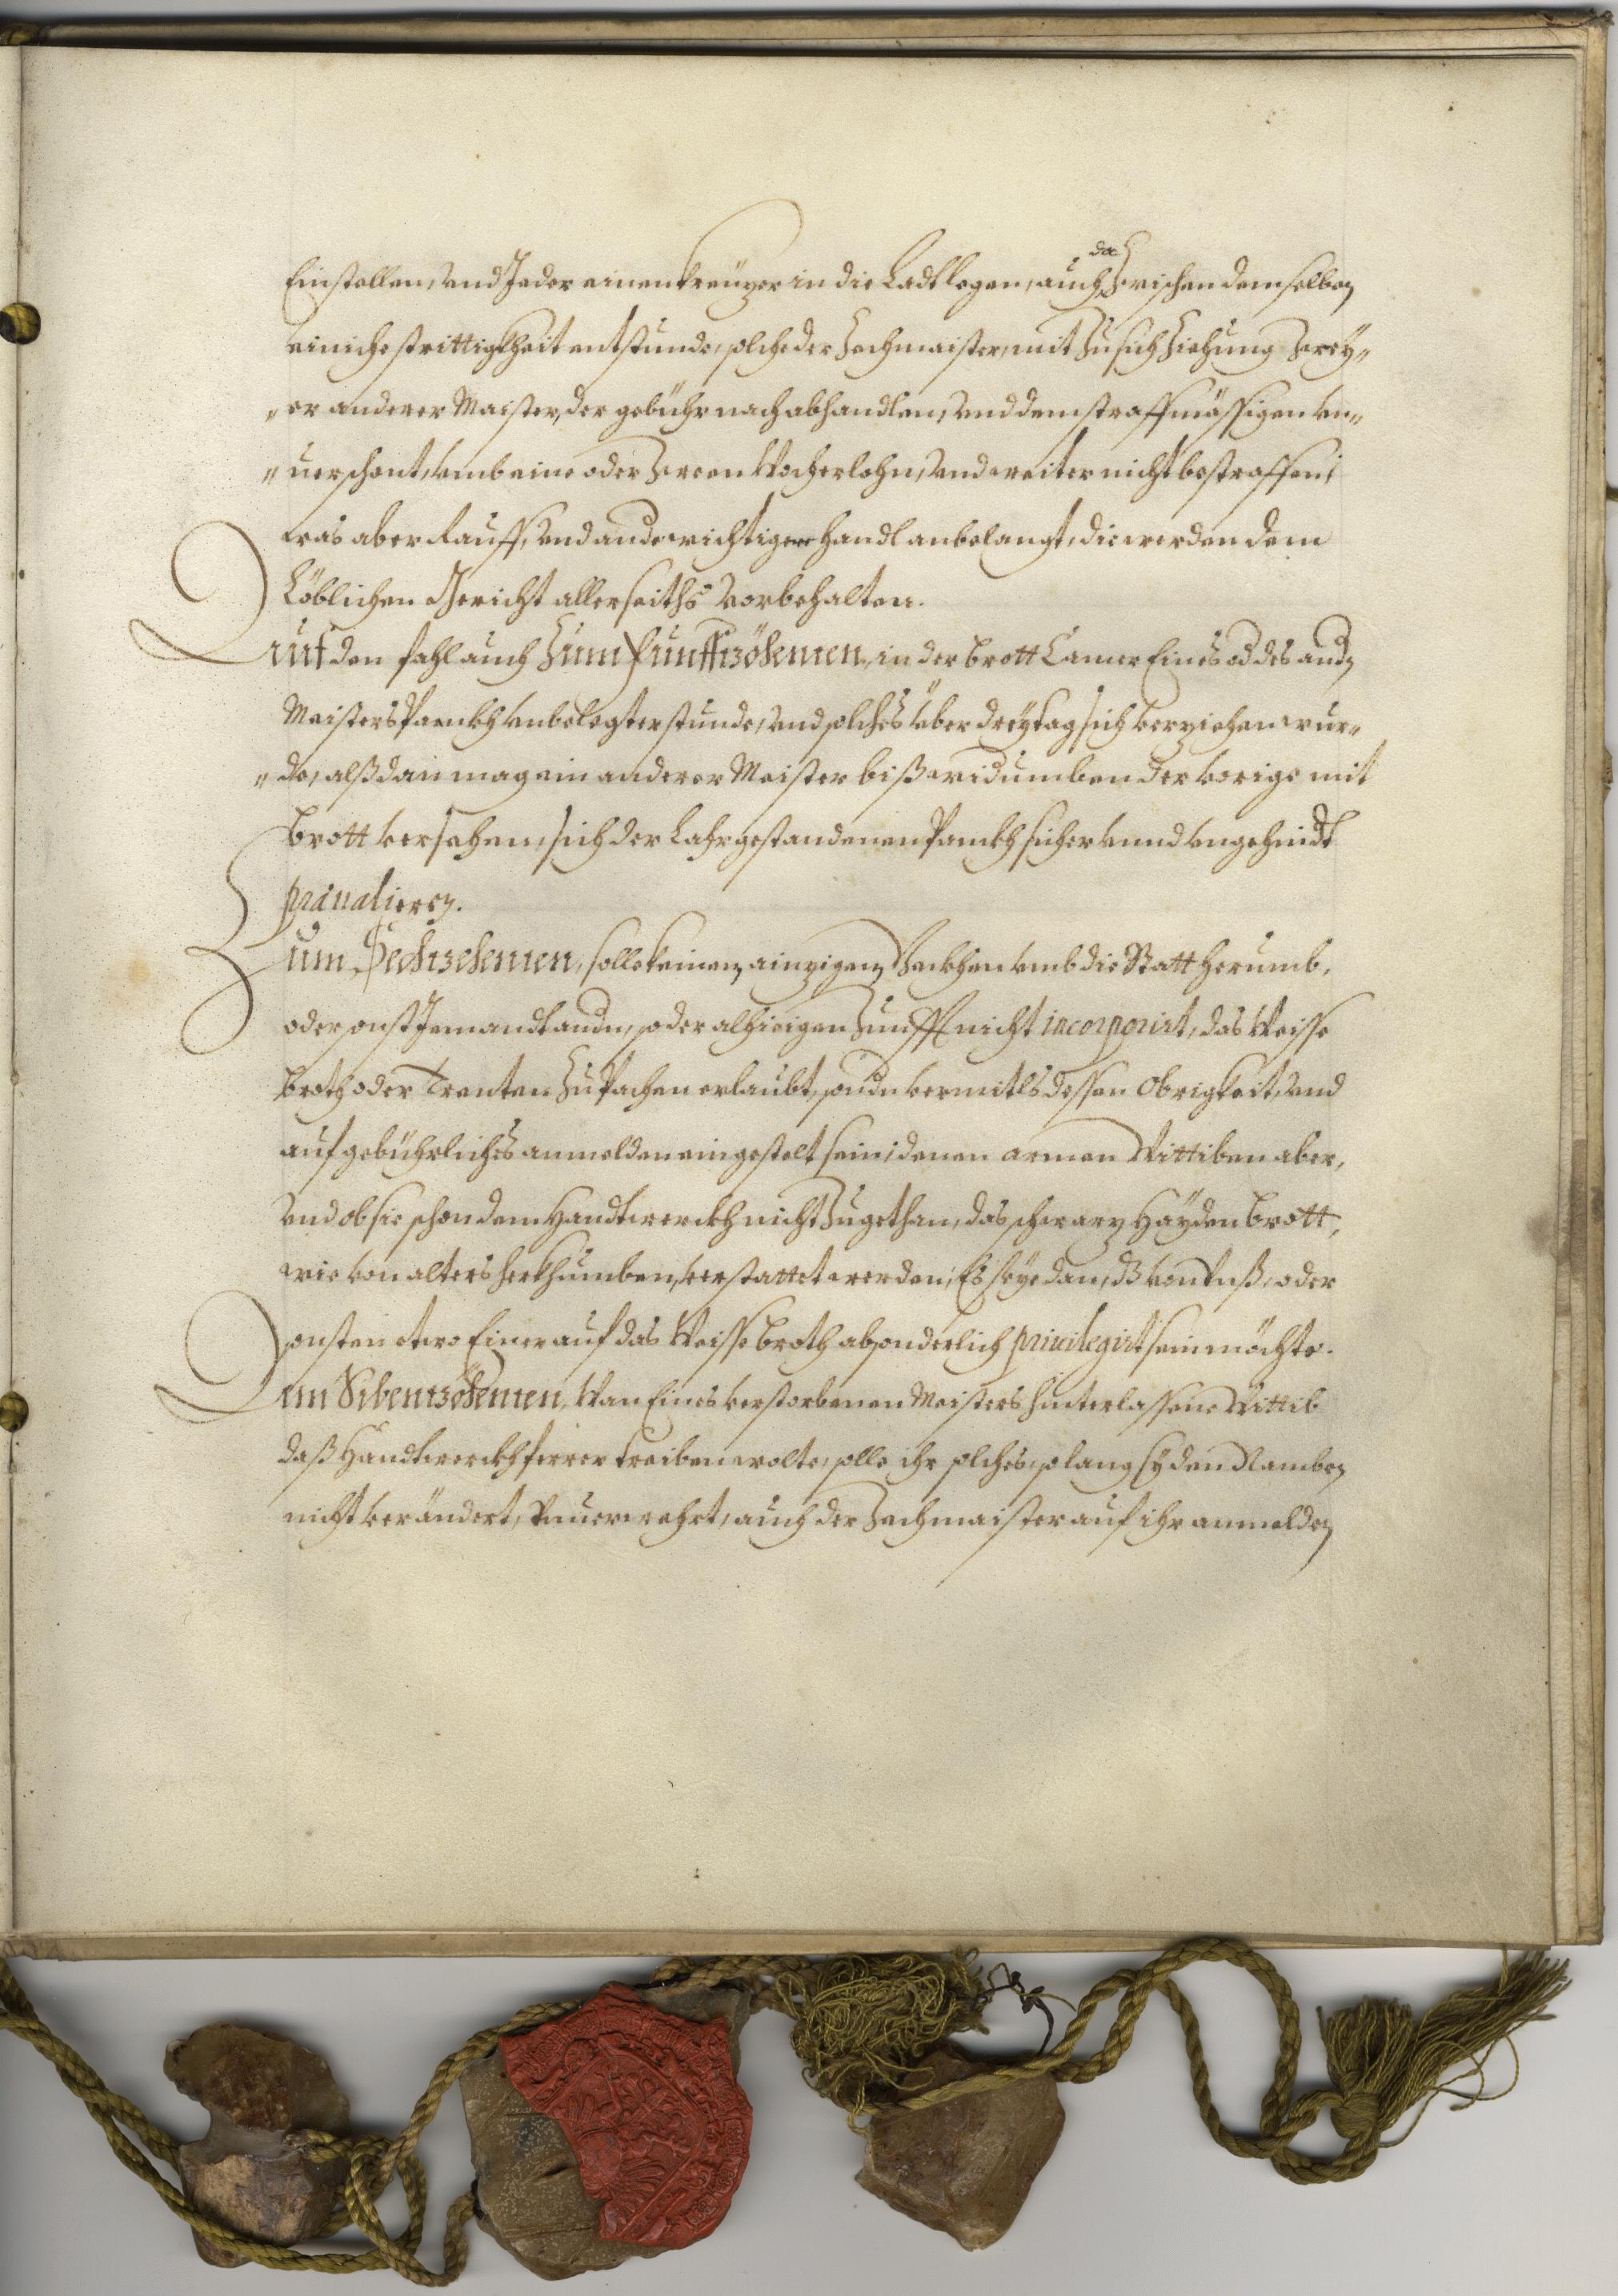 Einstellen, vnd Jeder einen kreüzer in die Ladt legen, auch da Zwischen demselben
einiche strittigkheit entstunde, solche der Zechmaister, mit Zusichziehung Zwey„
„er anderer Maister, der gebühr nach abhandlen, vnd dem straffmässigen vn„
„uerschont, vmb eine oder Zween Wocherlohn, vnd weiter nicht bestraffen,
was aber Rauff, vnd ande wichtigere handl anbelangt, die werden dem
Löblichen Gericht allerseiths Vorbehalten.
Auf den fahl auch Zum Funffzöhenten, in der brott Camer Eines od des andn
Meisters Panckh vnbelegter stunde, vnd solches über dreÿ tag sich verziehen wur„
„de, alßdan mag ein anderer Meister biß widumben der vorige mit
brott versehen, sich der Lahrgestandenen Panckh sicher vnnd vngehindt
præualieren.
Zum Sechzehenten, solle keinem ainzigem Beckhen vmb die Statt herumb,
oder sonst Jemandt andn, so der alhieigen Zunfft nicht incorporirt, das Weisse
broth oder Trenten Zu Pachen erlaubt, sondn vermitls dessen Obrigkeit, vnd
auf gebührliches anmelden eingestelt sein, denen armen Wittiben aber,
vnd ob sie schon dem Handtwerckh nicht Zugethan, das schwarz Haÿden brott,
wie von alters herkhumben, verstattet werden, Es seÿe dan, dz von Vnß, oder
sonsten etwo Einer auf das Weisse broth absonderlich priuilegirt sein möchte.
Am Sibentzöhenten, Wan Eines verstorbenen Meisters hinterlassene Wittib
daß Handtwerckh ferrer treiben wolte, solle ihr solches, so lang sÿ den Namben
nicht verändert, vnuerwehrt, auch der Zechmaister auf ihr anmelden